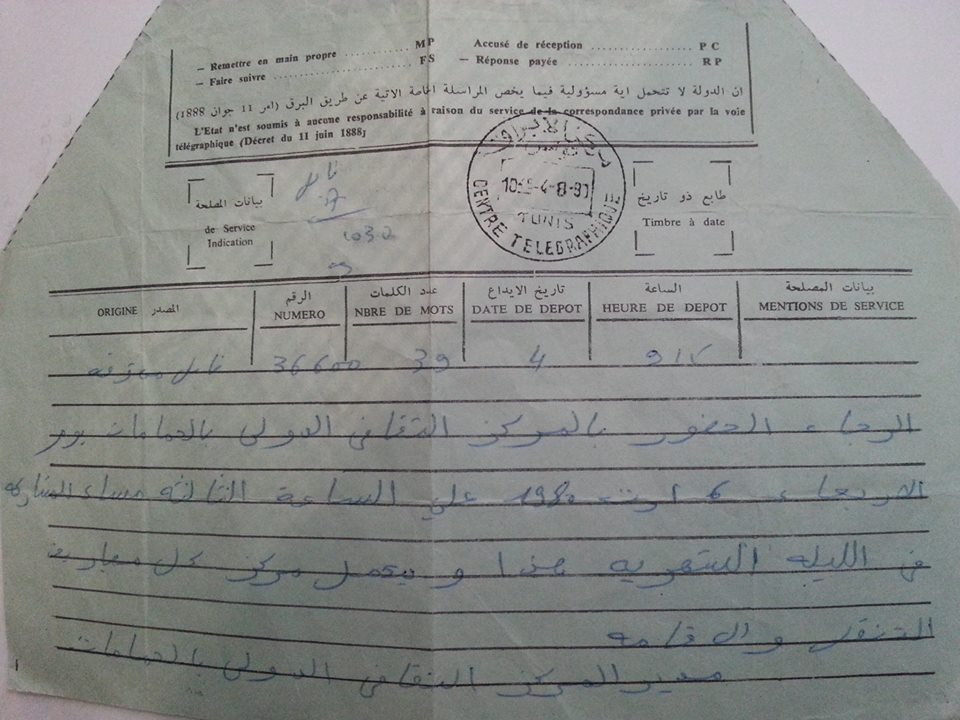 — Remettre en main propre ............ MP
— Faire suivre ............ FS
Accusé de réception ............ P C
— Réponse payée ............ R P
ان الدولة لا تتحمل اية مسؤولية فيما يخص المراسلة الخاصة الاتية عن طريق البرق (امر 11 جوان 1888)
L'Etat n'est soumis à aucune responsabilité à raison du service de la correspondance privée par la voie
télégraphique (Décret du 11 juin 1888)
بيانات المصلحة
de Service
Indication
نابل
1030
10
4-8-80
TUNIS
CENTRE TELEGRAPHIQUE
طابع ذو تاريخ
Timbre à date
المصدر ORIGINE
الرقم
NUMERO
عدد الكلمات
NBRE DE MOTS
تاريخ الايداع
DATE DE DEPOT
الساعة
HEURE DE DEPOT
بيانات المصلحة
MENTIONS DE SERVICE
نابل 36600 39 4
الرجاء الحضور بالمركز الثقافي الدولي بالحمامات يوم
الاربعاء 6 اوت 1980 علي الساعة الثالثة مساء المشاركة
في الليله الشعريه هذا و يتحمل مركز كل مصاريف
التنقل والاقامه
مدير المركز الثقافي الدولي بالحمامات